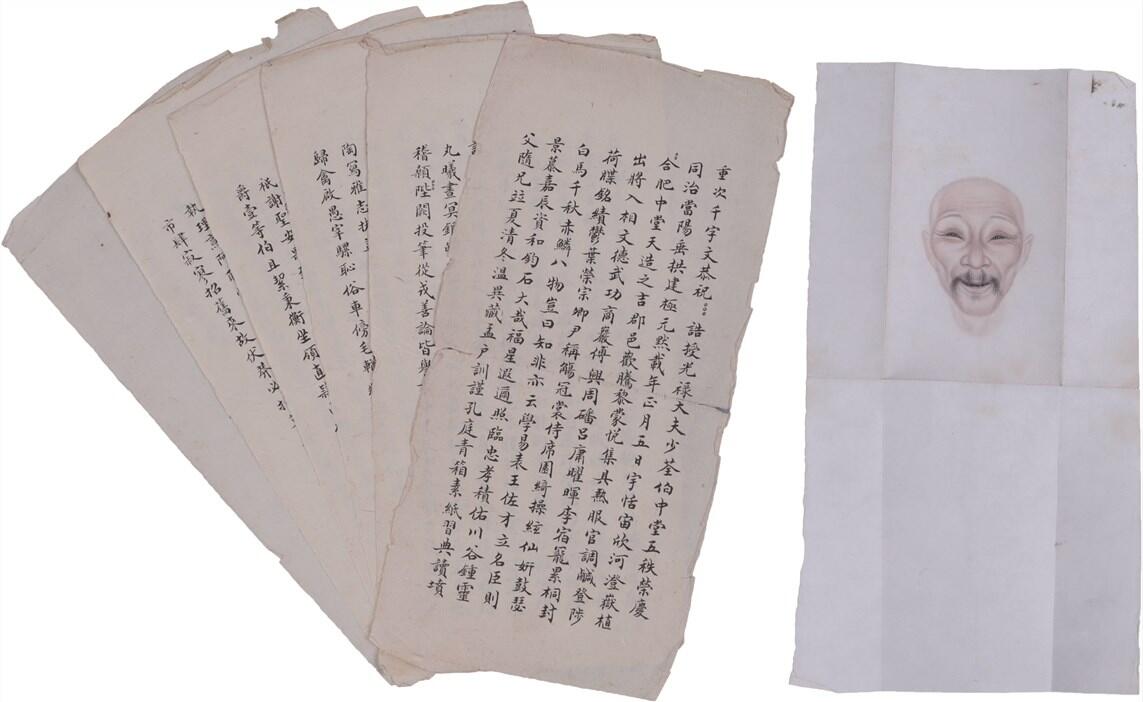 重次千字文恭祝 誥授光禄大夫少荃伯中堂五秩榮慶
同治當陽垂拱建極元黙載年正月五日宇恬宙欣河澄嶽植
合肥中堂天造之吉郡邑歡騰黎蒙悦集具熬服官調鹹登陟
出將入相文德武功商巖傅興周磻呂庸曜暉李宿籠累桐封
荷牒銘績鬱葉榮宗卿尹稱觴冠裳侍席園綺操絃仙妍鼓瑟
白馬千秋赤鱗八物豈曰知非亦云學易表王佐才立名臣則
景慕嘉辰資和鈞石大哉福星遐邇照臨忠孝積佑川谷鍾靈
父隨兄竝夏清冬溫異藏孟戶訓謹孔庭青箱素紙習典讀墳
丸曦晝冥
稽顙陛闕投筆從戎善論皆與
陶寫雅志
歸禽啟愚宰騾恥俗車傍毛
祇謝聖安
爵壹等伯且絜秉衡坐領直
執理
市肆寂寥招舊來故伏